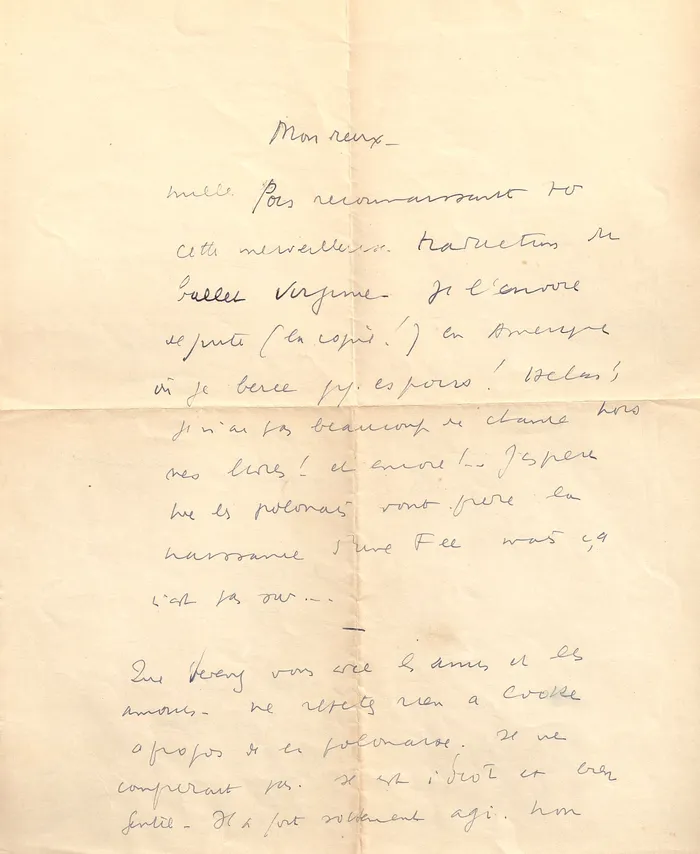 Mon vieux -
mille fois reconnaissant
cette merveilleuse traduction du
ballet Virginie Je l'envoie
de suite (la copie!) en Amerique
où je berce qq. espoirs! Helas!
Je n'ai pas beaucoup de chance hors
mes livres! et encore!... J'espere
que les polonais vont faire la
naissance d'une Fee mais ça
n'est pas sur ...
Que vous avec les amis et les
amours - ne repetez rien a
apropos de la polonaise. Il ne
comprerait pas. Il est idiot et
gentil - Il a fort sottement agi. Non